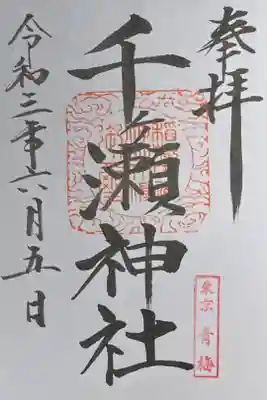 奉拝
千ヶ瀬神社
令和三年六月五日
東京 青梅